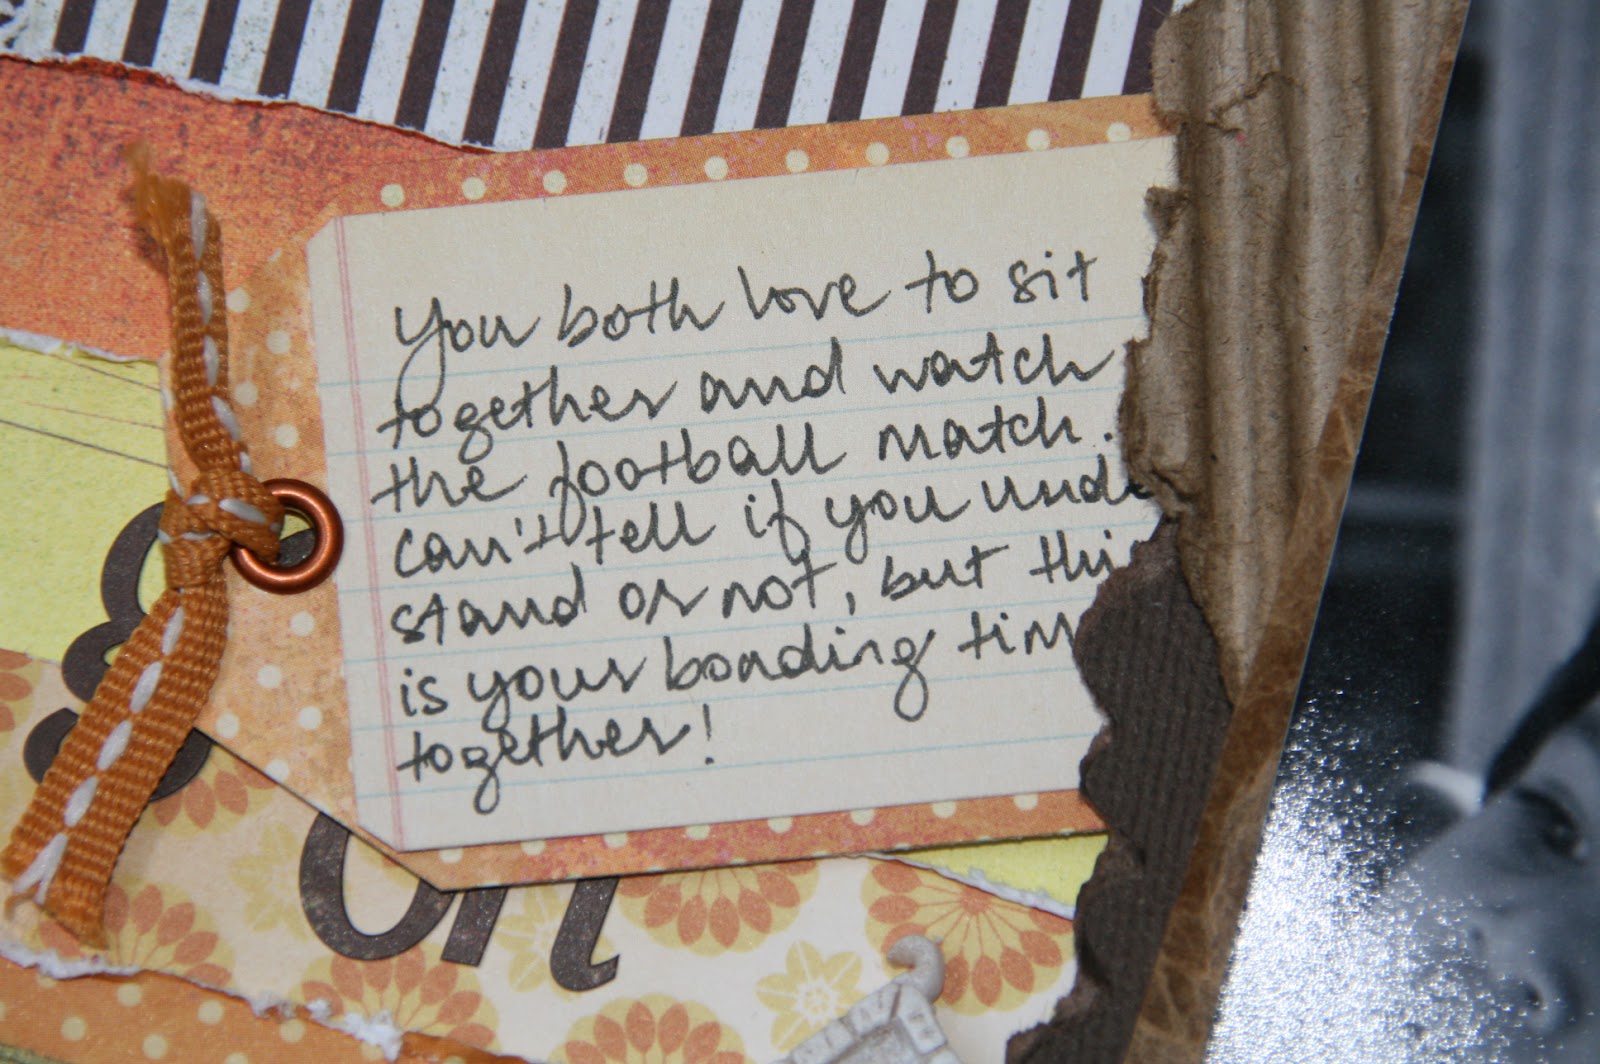 You both love to sit
together and watch
the football match.
can't tell if you unde
stand or not, but thi
is your bonding tim
together!
on